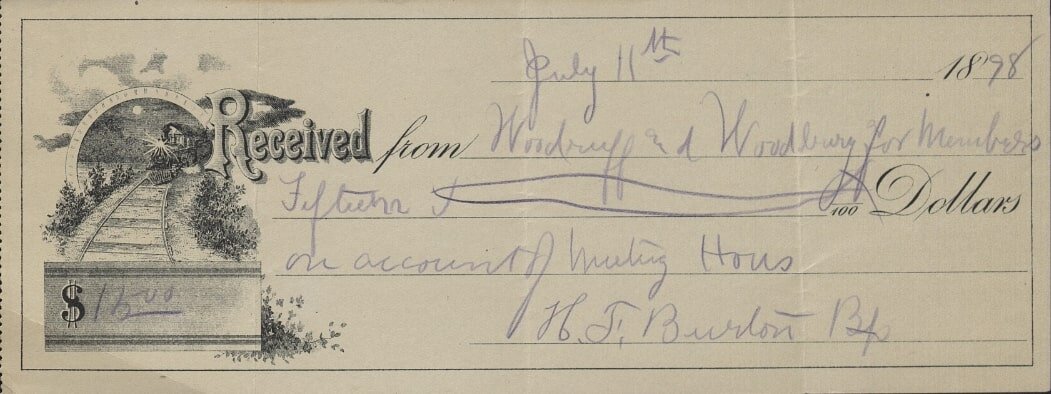 July 11th 1898
Received from Woodruff and Woodbury for Members
Fifteen /100 Dollars
on account of Meeting Hous
$ 15.00
H. F. Burton Bp